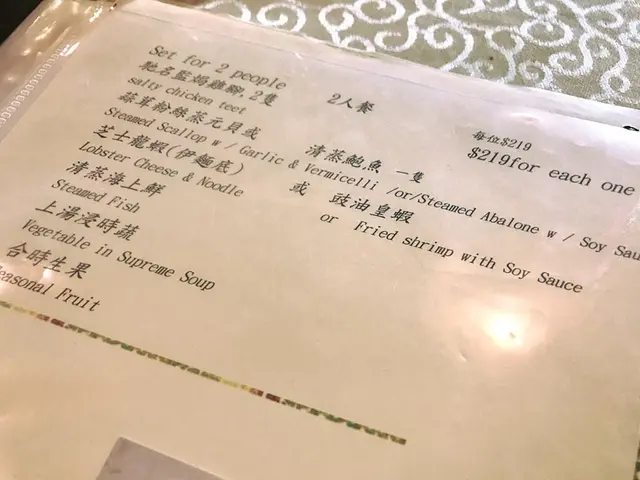 Set for 2 people 2人餐 每位$219
馳名鹽焗雞腳, 2隻 $219for each one
salty chicken teet
蒜茸粉絲蒸元貝或 清蒸鮑魚 一隻
Steamed Scallop w / Garlic & Vermicelli /or/Steamed Abalone w / Soy Sau
芝士龍蝦(伊麵底) 或 豉油皇蝦
Lobster Cheese & Noodle or Fried shrimp with Soy Sauce
清蒸海上鮮
Steamed Fish
上湯浸時蔬
Vegetable in Supreme Soup
合時生果
easonal Fruit